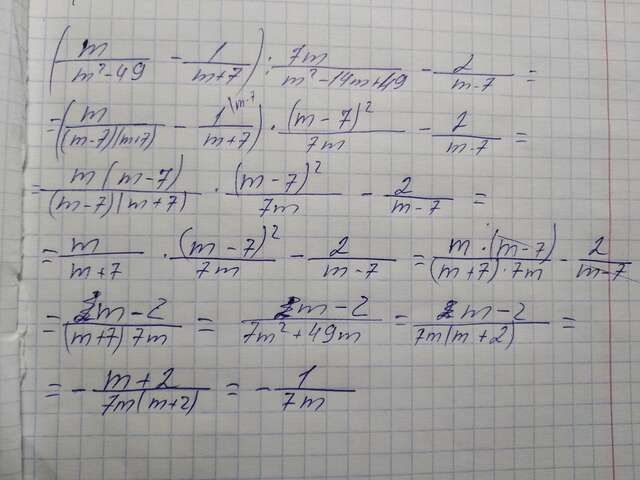 (m/(m²-49) - 1/(m+7)) : 7m/(m²-14m+49) - 2/(m-7) =
= (m/((m-7)(m+7)) - 1\m-7/(m+7)) · (m-7)²/7m - 2/(m-7) =
= m(m-7)/((m-7)(m+7)) · (m-7)²/7m - 2/(m-7) =
= m/(m+7) · (m-7)²/7m - 2/(m-7) = m·(m-7)/((m+7)·7m) - 2/(m-7)
= (2m-2)/((m+7)7m) = (2m-2)/(7m²+49m) = (2m-2)/(7m(m+2)) =
= - (m+2)/(7m(m+2)) = - 1/7m